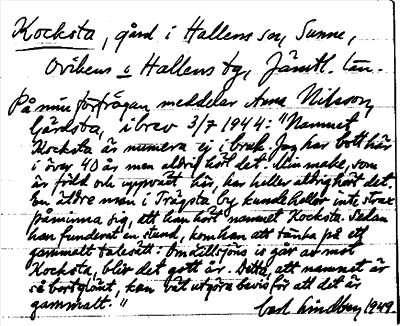 Kocksta, gård i Hallens sn, Sunne,
Ovikens o Hallens tg, Jämtl. län.
På min förfrågan meddelar Anna Nilsson,
Gärdsta, i brev 3/7 1944: "Namnet
Kocksta är numera ej i bruk. Jag har bott här
i över 40 år men aldrig hört det. Min make, som
är född och uppväxt här, har heller aldrig hört det.
En äldre man i Trägsta by kunde heller inte strax
påminna sig, att han hört namnet Kocksta. Sedan
han funderat en stund, kom han att tänka på ett
gammalt talesätt: Om dillsföns is går av mot
Kocksta, blir det gott år. Detta, att namnet är
så bortglömt, kan väl utgöra bevis för att det är
gammalt."
Carl Lindberg 1949.